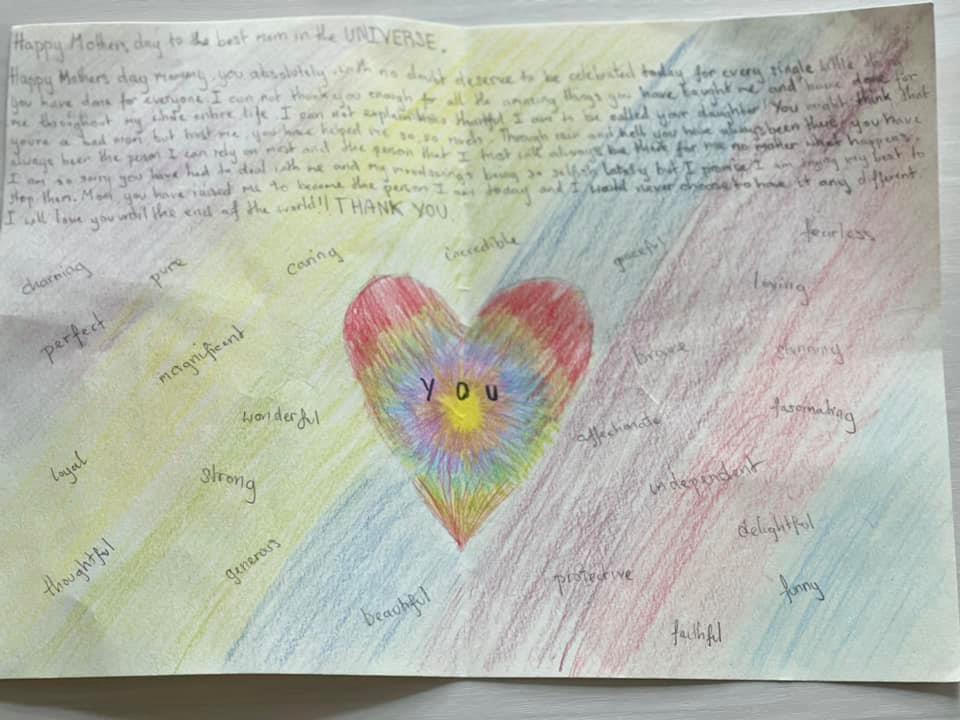 Happy Mothers day to the best mom in the UNIVERSE.
Happy Mothers day mommy, you absolutely with no doubt deserve to be celebrated today for every single little thing
you have done for everyone. I can not thank you enough for all the amazing things you have taught me and have done for
me throughout my whole entire life. I can not explain how thankful I am to be called your daughter! You might think that
you're a bad mom but trust me you have helped me so so much. Through rain and hell you have always been there, you have
always been the person I can rely on most and the person that I trust will always be there for me no matter what happens.
I am so sorry you have had to deal with me and my moodswings being so selfish lately but I promise I am trying my best to
stop them. Mom, you have raised me to become the person I am today and I would never choose to have it any different.
I will love you until the end of the world!! THANK YOU
charming
pure
caring
incredible
graceful
fearless
loving
perfect
magnificent
brave
stunning
you
wonderful
affectionate
fasomating
loyal
strong
independent
delightful
thoughtful
generous
beautiful
protective
funny
faithful